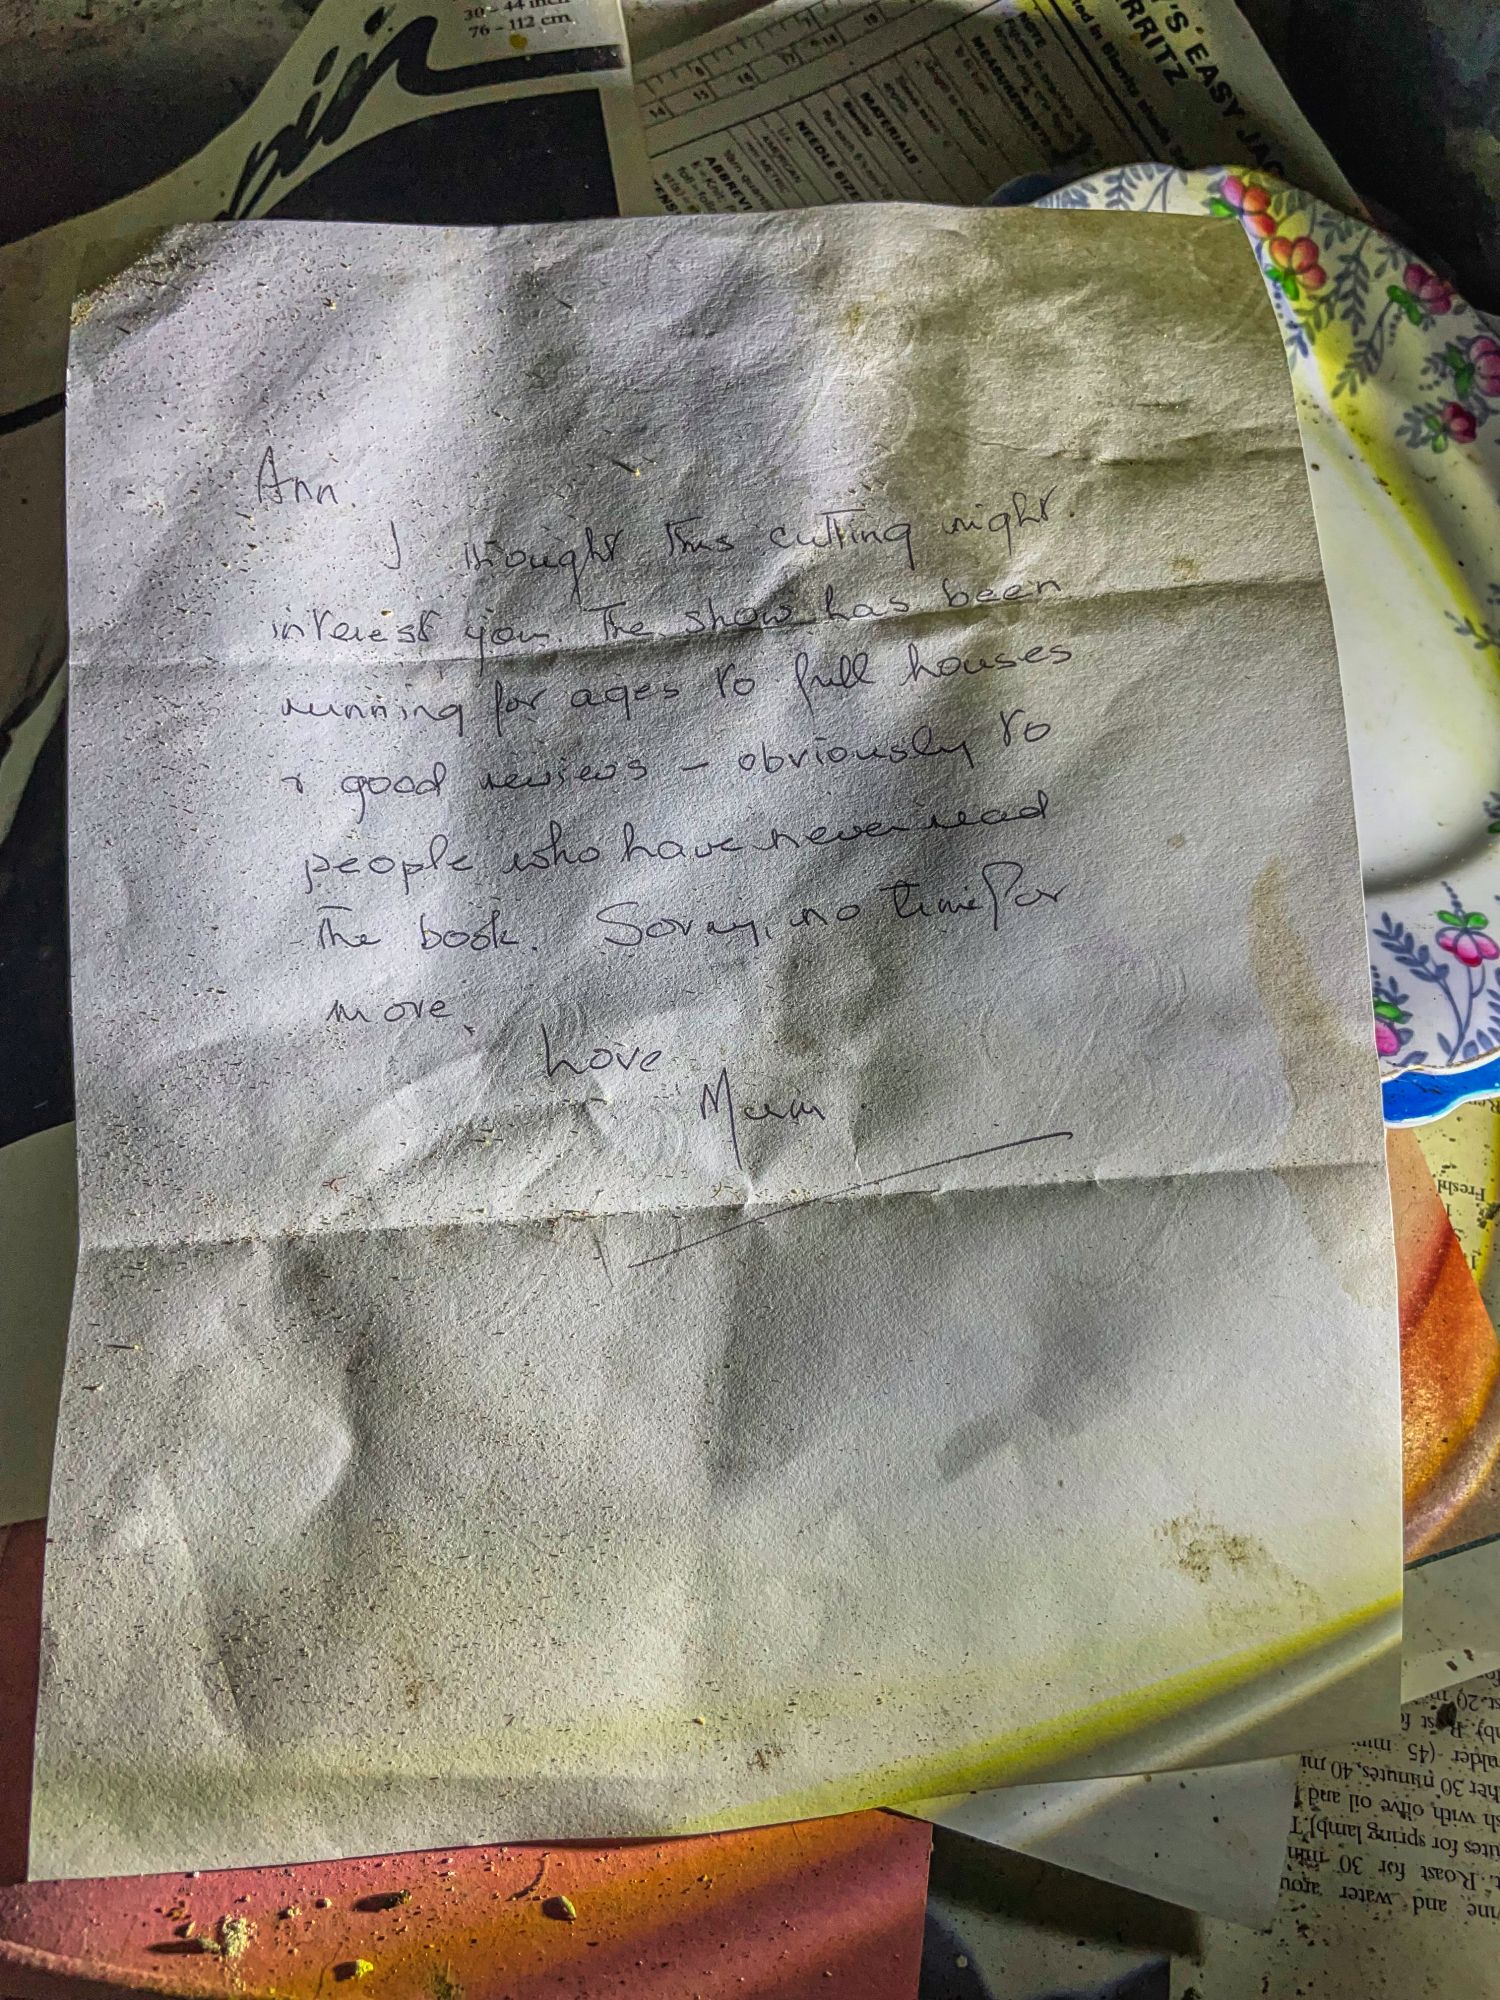 30 - 44 inch
76 - 112 cm
'S EASY JAC
RRITZ
NOTE
MEASUREMENTS
MATERIALS
NEEDLE SIZE
AMERICAN
METRIC
ABBREV
TENS
Ann.
I thought this cutting might
interest you. The show has been
running for ages to full houses
& good reviews - obviously to
people who have never read
the book. Sorry, no time for
more.
Love
Mum
Freshl
st 20 m
mb). Roast f
alder (45 min
her 30 minutes, 40 mi
sh with olive oil and
utes for spring lamb). T
t. Roast for 30 min
ine and water arou